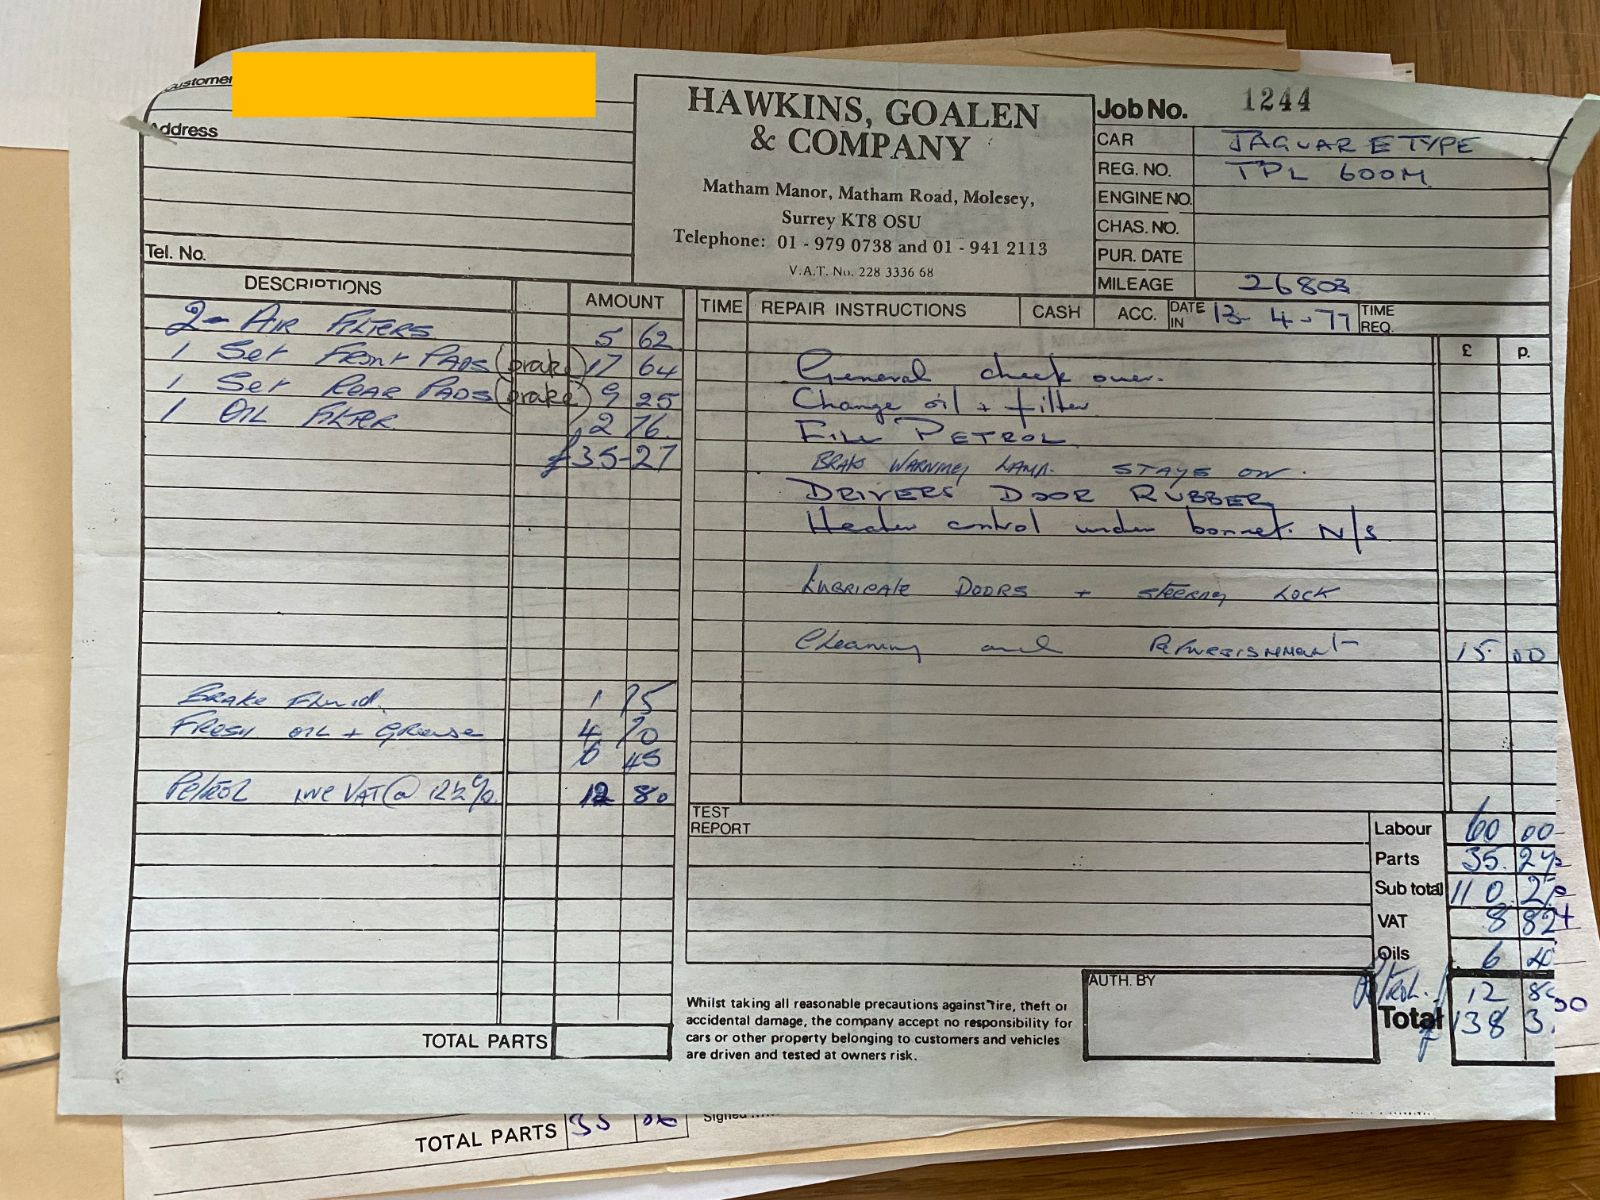 Customer
Address
Tel. No.
HAWKINS, GOALEN
& COMPANY
Matham Manor, Matham Road, Molesey,
Surrey KT8 OSU
Telephone: 01 - 979 0738 and 01 - 941 2113
V.A.T. No. 228 3336 68
Job No. 1244
CAR JAGUAR E TYPE
REG. NO. TPL 600M
ENGINE NO.
CHAS. NO.
PUR. DATE
MILEAGE 26803
DESCRIPTIONS AMOUNT
2 - AIR FILTERS 5 62
1 Set Front PADS (brake) 17 64
1 Set REAR PADS (brake) 9 25
1 OIL FILTER 2 76
£35-27
Brake Fluid. 1 75
FRESH OIL + Grease 4 70
6 45
Petrol INC VAT @ 12½% 12 80
TOTAL PARTS
TIME REPAIR INSTRUCTIONS CASH ACC. DATE IN 13-4-77 TIME REQ.
£ p.
General check over.
Change oil + filter
FILL PETROL
BRAKE WARNING LAMP. STAYS ON.
DRIVERS DOOR RUBBER
Heater control under bonnet. N/S
LUBRICATE DOORS + steering LOCK
Cleaning and Refurbishment 15 00
TEST
REPORT
Labour 60 00
Parts 35.27
Sub total 110.27
VAT 8 82
Oils 6
Petrol. 12
Total £138 3
AUTH. BY
Whilst taking all reasonable precautions against fire, theft or
accidental damage, the company accept no responsibility for
cars or other property belonging to customers and vehicles
are driven and tested at owners risk.
TOTAL PARTS 35
Signed